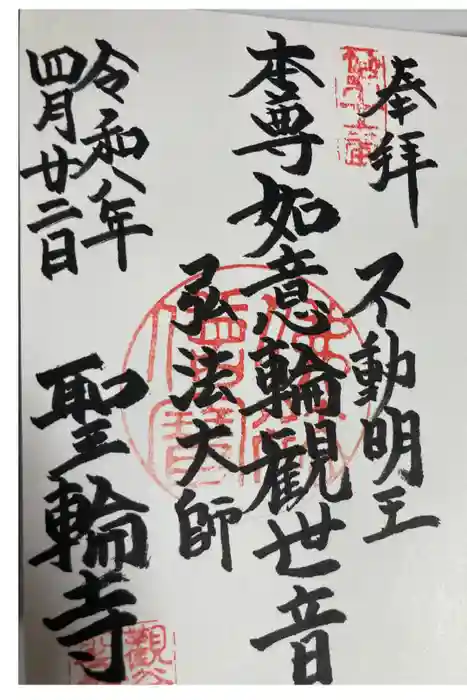 奉拝
不動明王
本尊如意輪観世音
弘法大師
令和八年
四月廿二日
聖輪寺